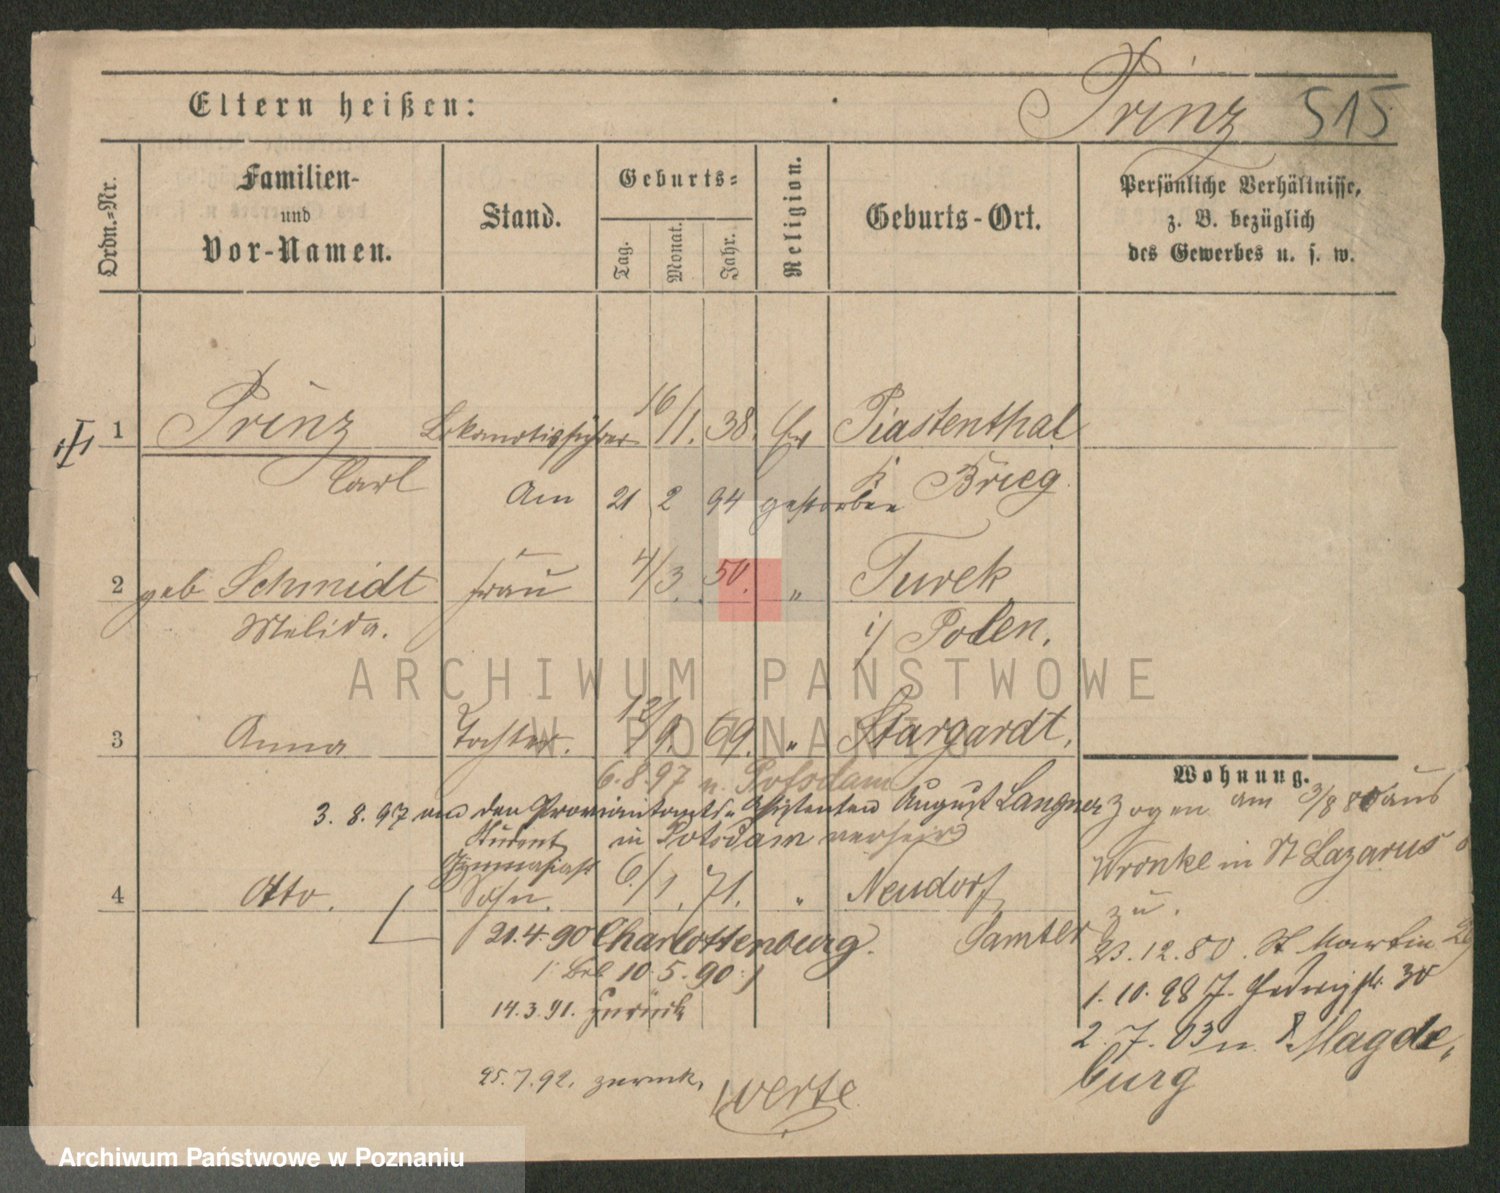 Eltern heißen:
Prinz 515
Ordn.-Nr.
Familien-
und
Vor-Namen.
Stand.
Geburts-
Tag.
Monat.
Jahr.
Religion.
Geburts-Ort.
Persönliche Verhältnisse,
z. B. bezüglich
des Gewerbes u. s. w.
1 Prinz Lokomotivführer 16/1. 38. Ev Piastenthal
Carl Am 21 2 94 gestorben Brieg
2 geb Schmidt Frau 4/3. 50. " Turek
Melida. i/ Polen.
ARCHIWUM PAŃSTWOWE
W POZNANIU
3 Anna Tochter. 13/9. 69. " Stargardt.
6.8.97 n. Potsdam
Wohnung.
3. 8. 97 den Proviantamts-Assistenten August Langner
in Potsdam
zogen am 3/8 80 aus
Student
Gymnasiast
Wronke in St Lazarus
zu.
4 Otto. Sohn. 6/1. 71. " Neudorf
Samter
20.4.90 Charlottenburg.
10.5.90
14.3.91. zurück
23.12.80. St Martin
1.10.98 30
2.7.03 n. Magde,
burg
25.7.92. zurück,
werte
Archiwum Państwowe w Poznaniu